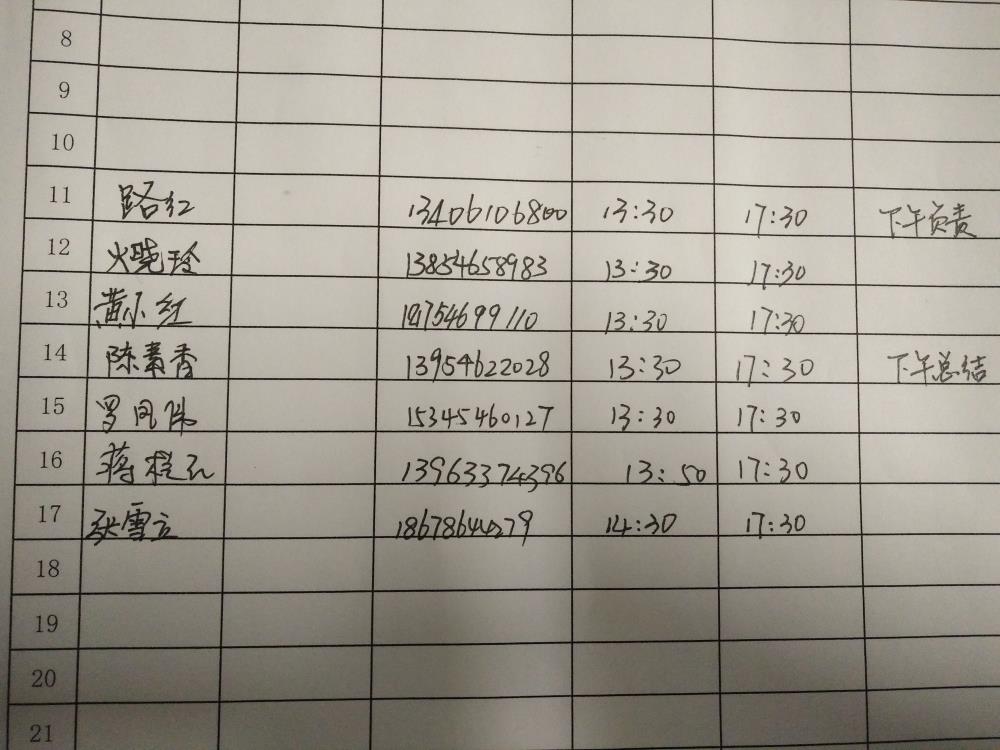 8
9
10
11 路红 13406106800 13:30 17:30 下午负责
12 火晓玲 13854658983 13:30 17:30
13 黄小红 13:30 17:30
14 陈素香 13954622028 13:30 17:30 下午总结
15 罗凤 15345460127 13:30 17:30
16 蒋桂 13963374396 13:50 17:30
17 张雪立 14:30 17:30
18
19
20
21